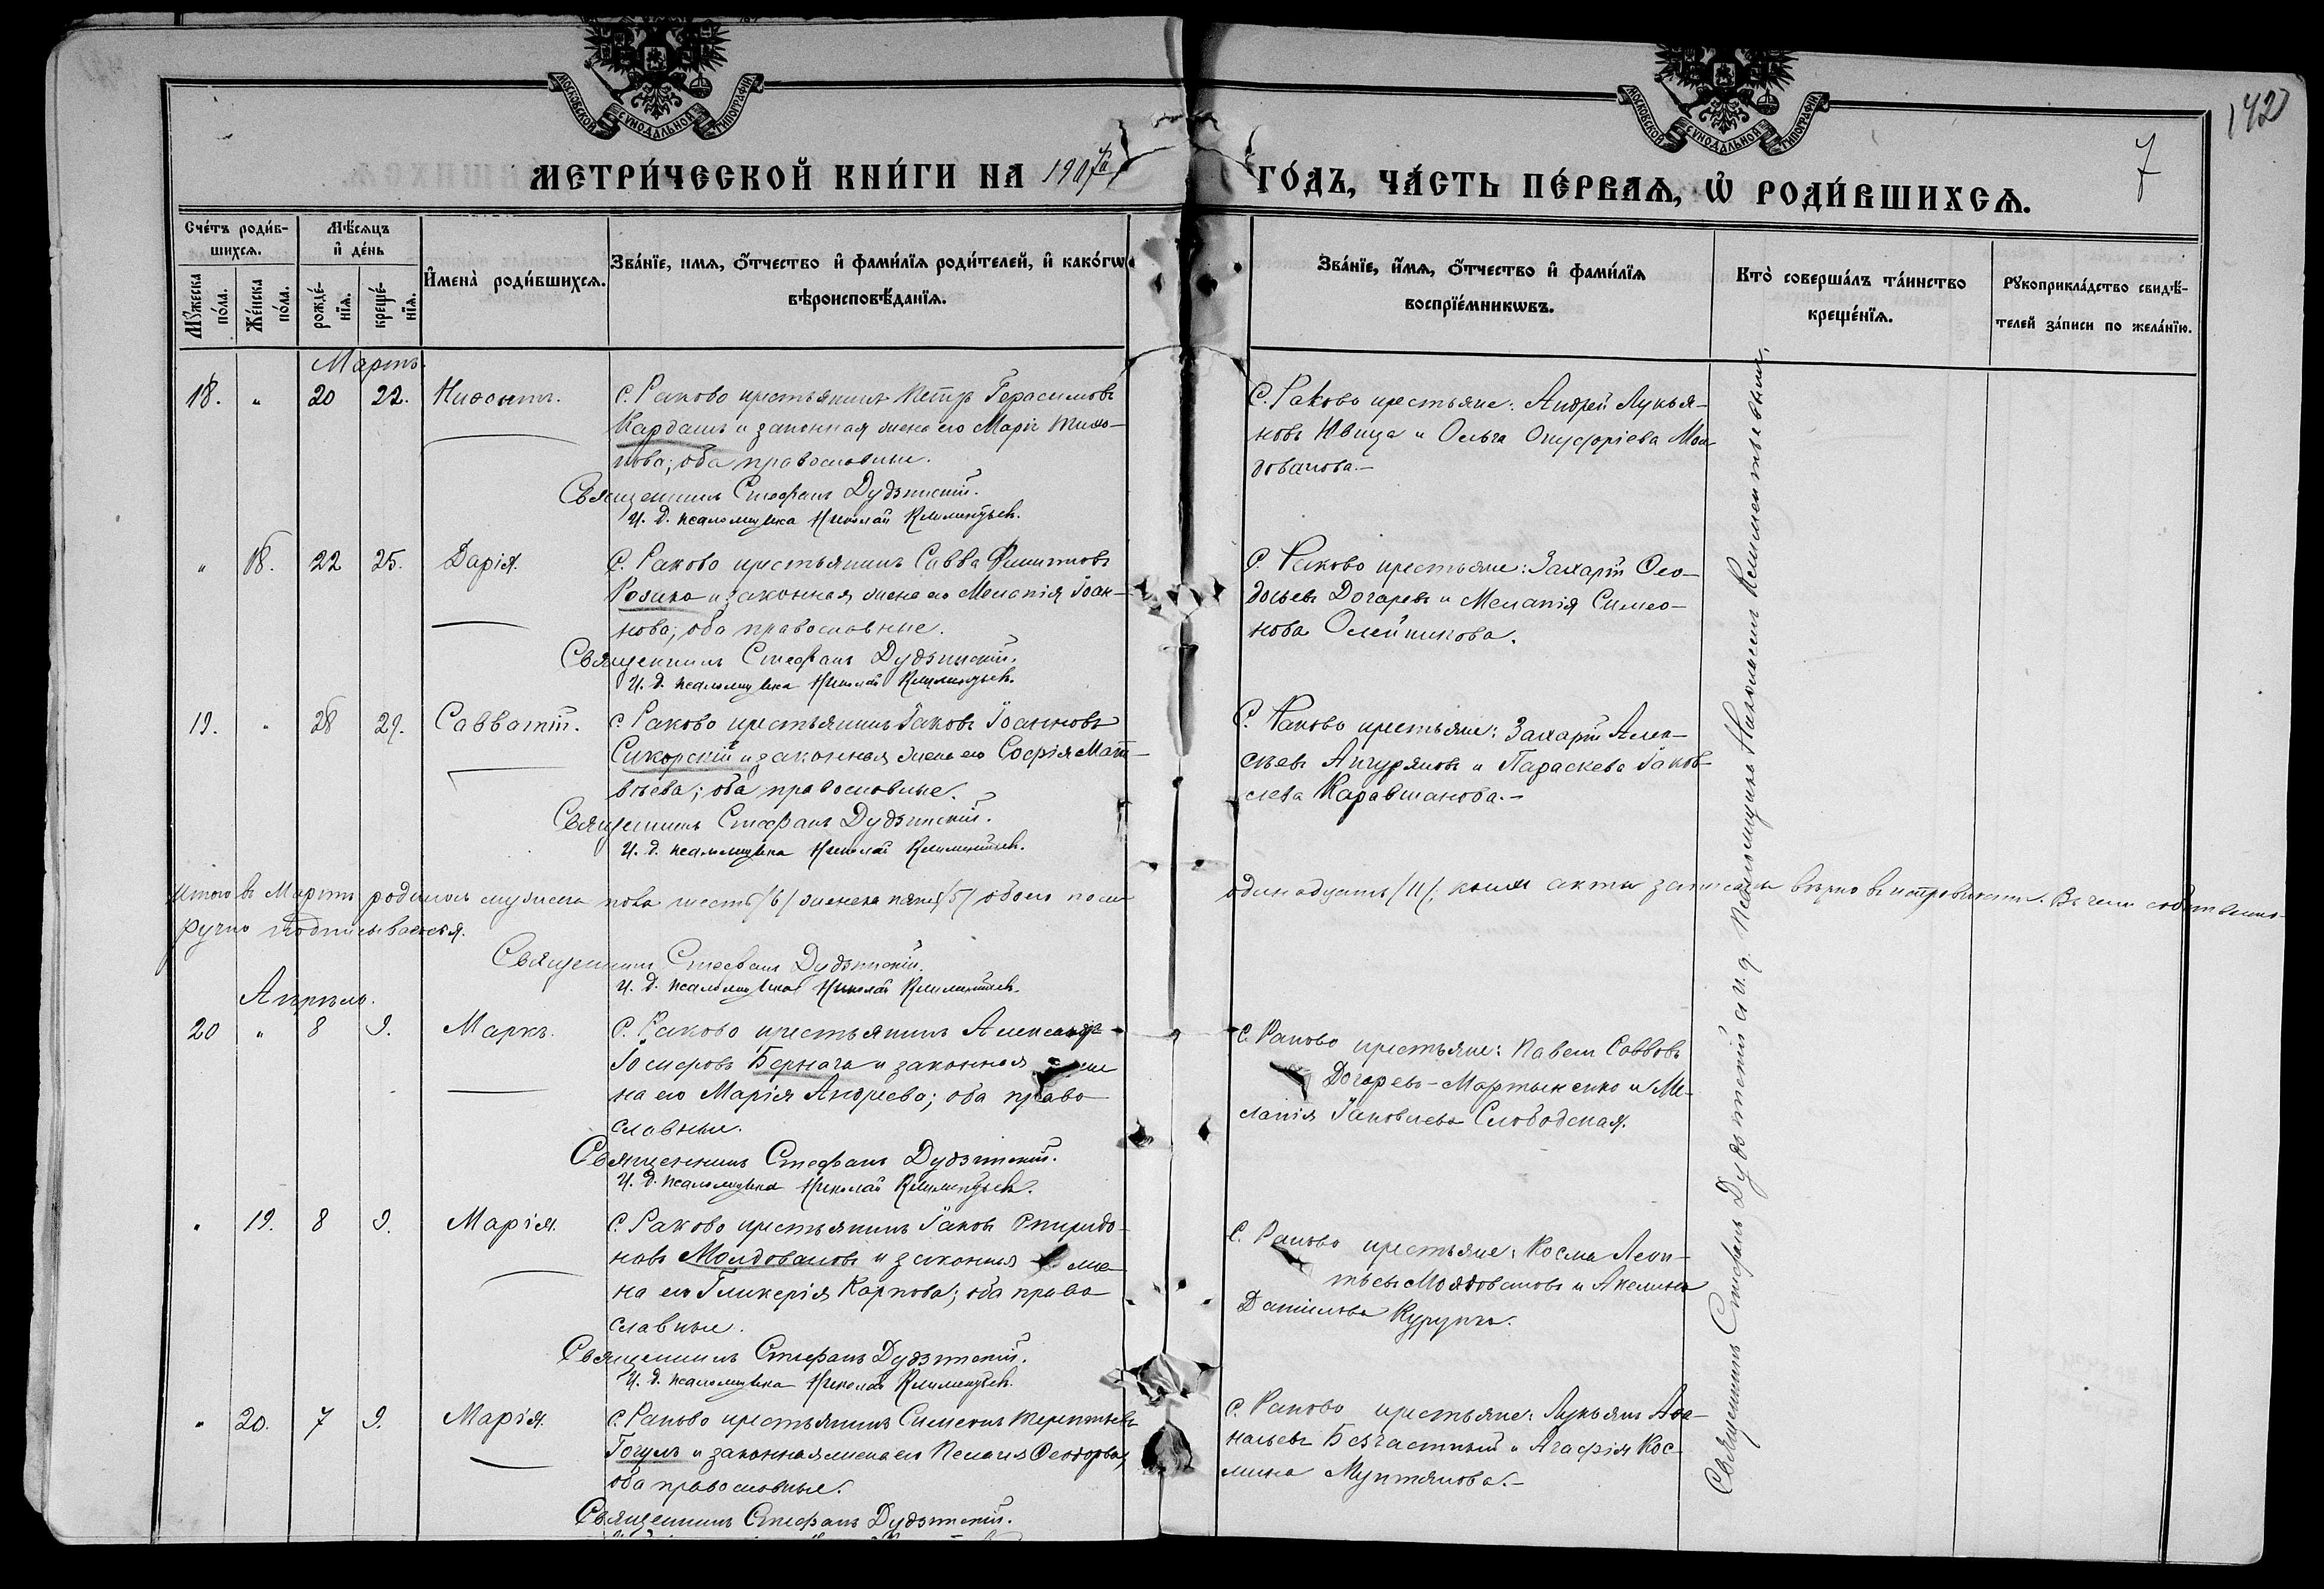 МОСКОВСКОЙ СУНОДАЛЬНОЙ ТИПОГРАФІИ
МОСКОВСКОЙ СУНОДАЛЬНОЙ ТИПОГРАФІИ
142
7
МЕТРИ́ЧЕСКОЙ КНИ́ГИ НА 1907й
ГО́ДЪ, ЧА́СТЬ ПЕ́РВАѦ, Ѡ҆ РОДИ́ВШИХСѦ.
Сче́тъ роди́в-
шихсѧ.
Мꙋ́жеска по́ла.
Же́нска по́ла.
Мѣ́сѧцъ
и҆ де́нь
рожде́-нїѧ.
креще́-нїѧ.
И҆мена̀ роди́вшихсѧ.
Зва́нїе, имѧ, ѻ҆́тчество и҆ фами́лїѧ роди́телей, и҆ како́гѡ
вѣроисповѣ́данїѧ.
Зва́нїе, и҆́мѧ, ѻ҆́тчество и҆ фами́лїѧ
воспрїе́мникѡвъ.
Кто̀ соверша́лъ та́инство
креще́нїѧ.
Рꙋкоприкла́дство свидѣ́-
телей за́писи по жела́нїю.
Мартъ.
18. " 20 22. Нифонтъ.
С. Раково крестьянинъ Петръ Герасимовъ
Кардашъ и законная жена его Марія
нова; оба православные.
Священникъ Стефанъ Дудзинскій.
И. д. псаломщика Николай Климентьевъ.
С. Раково крестьяне: Андрей Лукья-
новъ и Ольга Онуфріева Мол-
дованова.—
" 18. 22 25. Дарія.
С. Раково крестьянинъ Савва Филипповъ
и законная жена его Меланія Іоан-
нова; оба православные.
Священникъ Стефанъ Дудзинскій.
И. д. псаломщика Николай Климентьевъ.
С. Раково крестьяне: Захарій Ѳео-
досьевъ Догаревъ и Меланія Симео-
нова Олейникова.
19. " 28 29. Савватій.
С. Раково крестьянинъ Іаковъ Іоанновъ
Сикорскій и законная жена его Софія Мат-
вѣева; оба православные.
Священникъ Стефанъ Дудзинскій.
И. д. псаломщика Николай Климентьевъ.
С. Раково крестьяне: Захарій Алек-
сѣевъ и Параскева Іаков-
лева Каравшанова.—
Итого въ Мартѣ родилось мужеска пола шесть /6/ женска пять /5/ обоего пола
одинадцать /11/, коихъ акты записаны вѣрно и исправно. Въ чемъ собственно-
ручно подписываемся.
Священникъ Стефанъ Дудзинскій.
И. д. псаломщика Николай Климентьевъ.
Апрѣль.
20 " 8 9. Маркъ.
С. Раково крестьянинъ Александръ
Іосифовъ Бернага и законная же-
на его Марія Андреева; оба право-
славные.
Священникъ Стефанъ Дудзинскій.
И. д. псаломщика Николай Климентьевъ.
С. Раково крестьяне: Павелъ Саввовъ
Догаревъ-Мартыненко и Ме-
ланія Іаковлева Слободская.
" 19. 8 9. Марія.
С. Раково крестьянинъ Іаковъ Спиридо-
новъ Молдовановъ и законная же-
на его Гликерія Карпова; оба право-
славные.
Священникъ Стефанъ Дудзинскій.
И. д. псаломщика Николай Климентьевъ.
С. Раково крестьяне: Косма Леон-
тьевъ Молдовановъ и Акелина
Даніилова
" 20. 7 9. Марія.
С. Раково крестьянинъ Симеонъ Терентьевъ
и законная жена его Пелагія Ѳеодорова;
оба православные.
Священникъ Стефанъ Дудзинскій.
С. Раково крестьяне: Лукьянъ Аѳа-
насьевъ Безчастный и Агафія Кос-
мина Мунтянова.—
Священникъ Стефанъ Дудзинскій съ и. д. псаломщика Николаемъ Климентьевымъ.